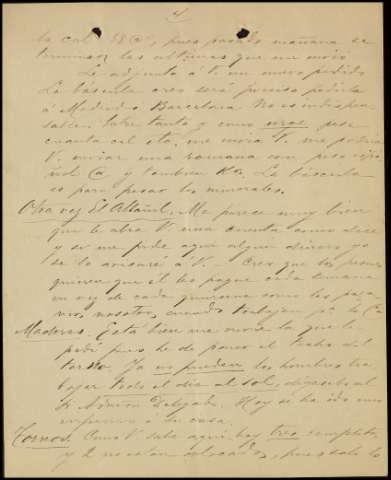 4
la cal 58 @s, pues pasado mañana se
terminan las últimas que me envió
Le adjunto á V. un nuevo pedido
La báscula creo será preciso pedirla
á Madrid o Barcelona. No es indispen
sable. Entre tanto y como urge pese
cuanta cal etc. me envia V. me podria
V. enviar una romana con peso
en @ y tambien Ks. La báscula
es para pesar los minerales.
Otra vez El Albañil. Me parece muy bien
que le abra V. una cuenta como dice
y si me pide aqui algun dinero yo
se lo avisaré a V. Creo que los peones
quieren que él les pague cada semana
en vez de cada quincena como les paga
mos nosotros, cuando trabajan pa la Ca
Maderas. Está bien me envie la que le
pedí pues he de poner el techo del
Ya no pueden los hombres tra
bajar todo el dia al sol, digaselo al
Sr. Delegado. Hoy se ha ido uno
enfermo á su casa.
Tornos. Como V. sabe aqui hay tres completos,
y 2 no estan colocados, pues solo lo